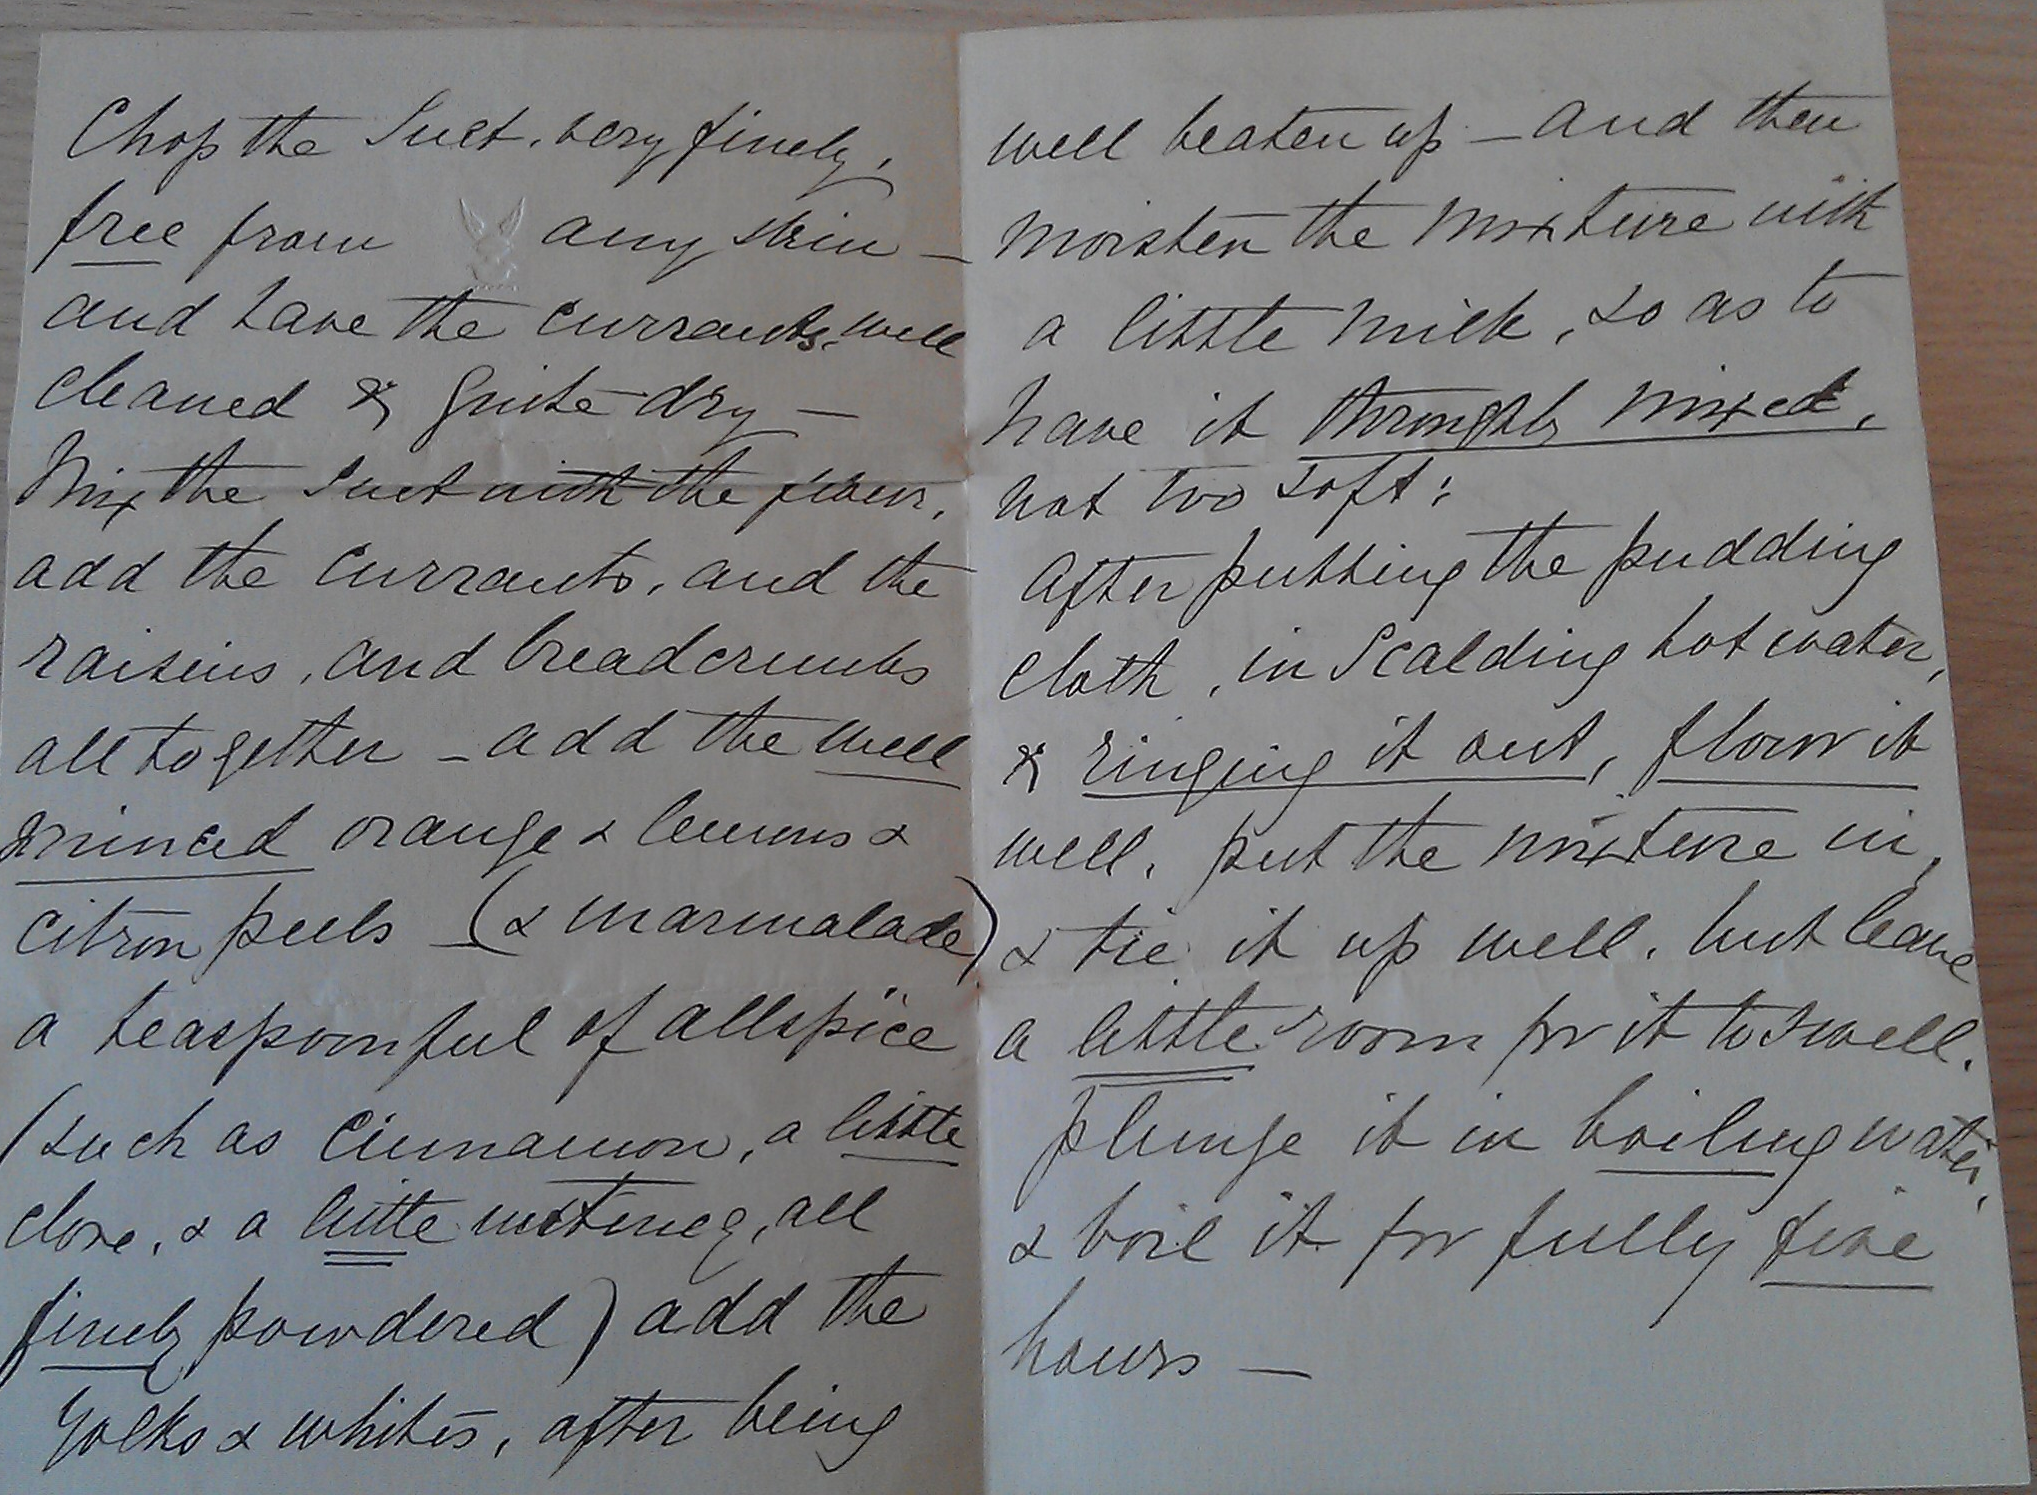 Chop the Suet, very finely,
free from any skin —
and have the currants, well
cleaned & quite dry —
Mix the Suet with the flour,
add the currants, and the
raisins, and breadcrumbs
all together — add the well
minced orange & lemons &
citron peels — (& marmalade)
a teaspoonful of allspice
(such as cinnamon, a little
clove, & a little nutmeg, all
finely powdered) add the
yolks & whites, after being
well beaten up — and then
moisten the mixture with
a little milk, so as to
have it thoroughly mixed,
not too soft;
After putting the pudding
cloth, in scalding hot water,
& ringing it out, flour it
well, put the mixture in,
& tie it up well, but leave
a little room for it to swell.
plunge it in boiling water,
& boil it for fully five
hours —